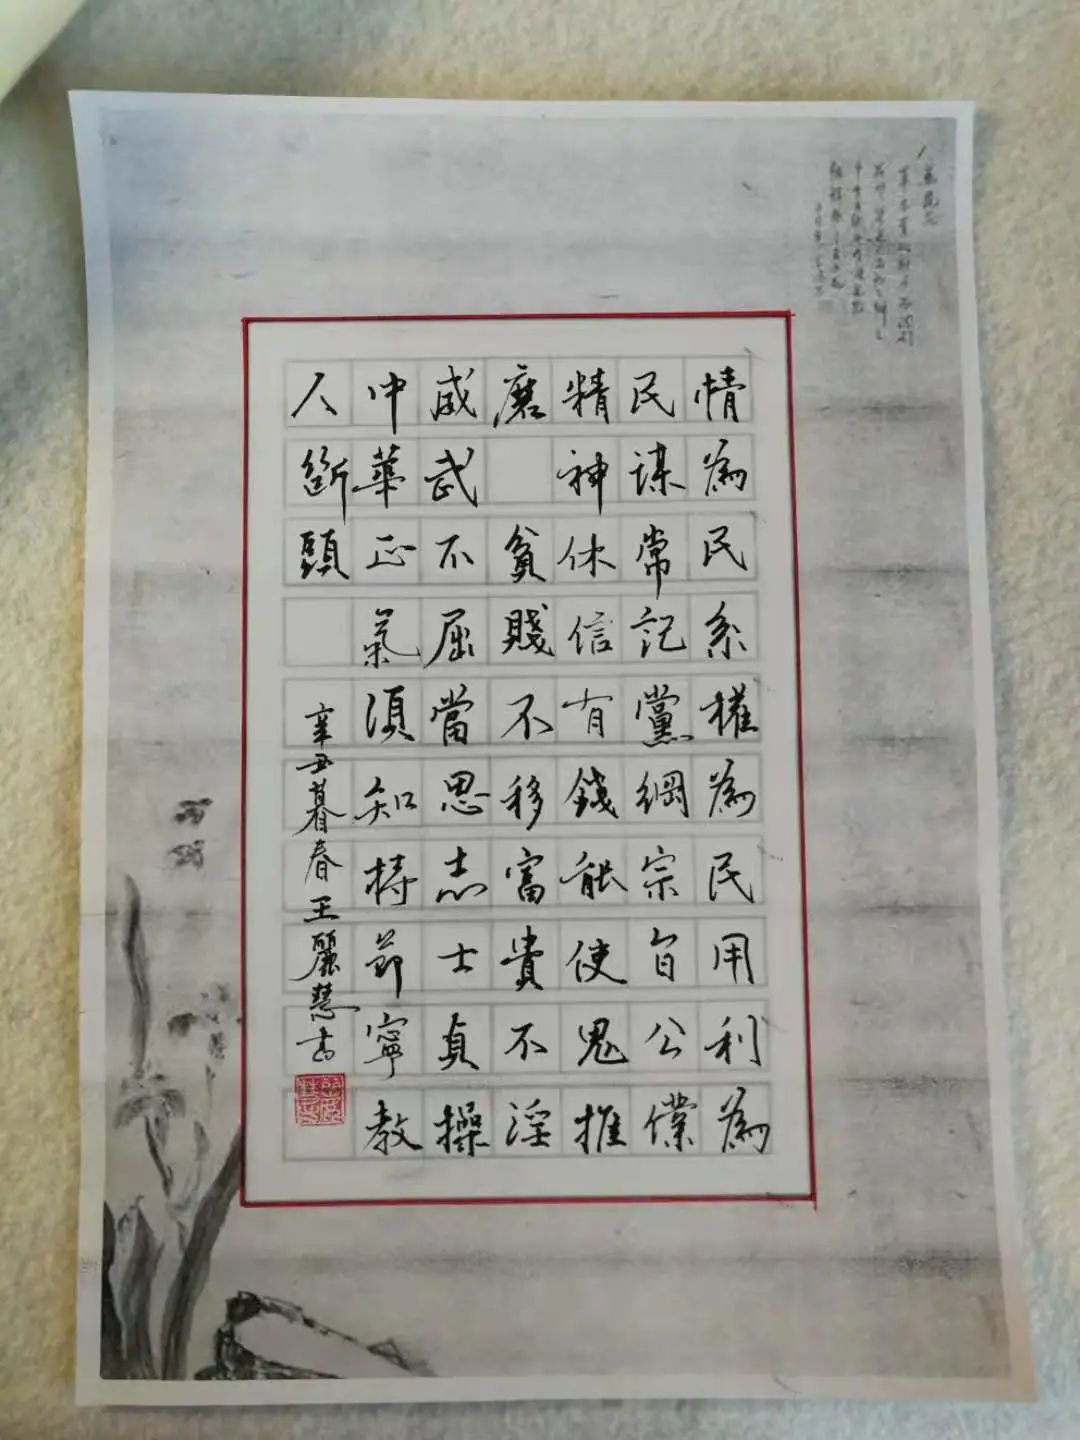 情為民系權為民用利為
民謀常記黨綱宗旨公僕
精神休信有錢能使鬼推
磨 貧賤不移富貴不淫
威武不屈當思志士貞操
中華正氣須知持節寧教
人斷頭
辛丑暮春王麗慧書